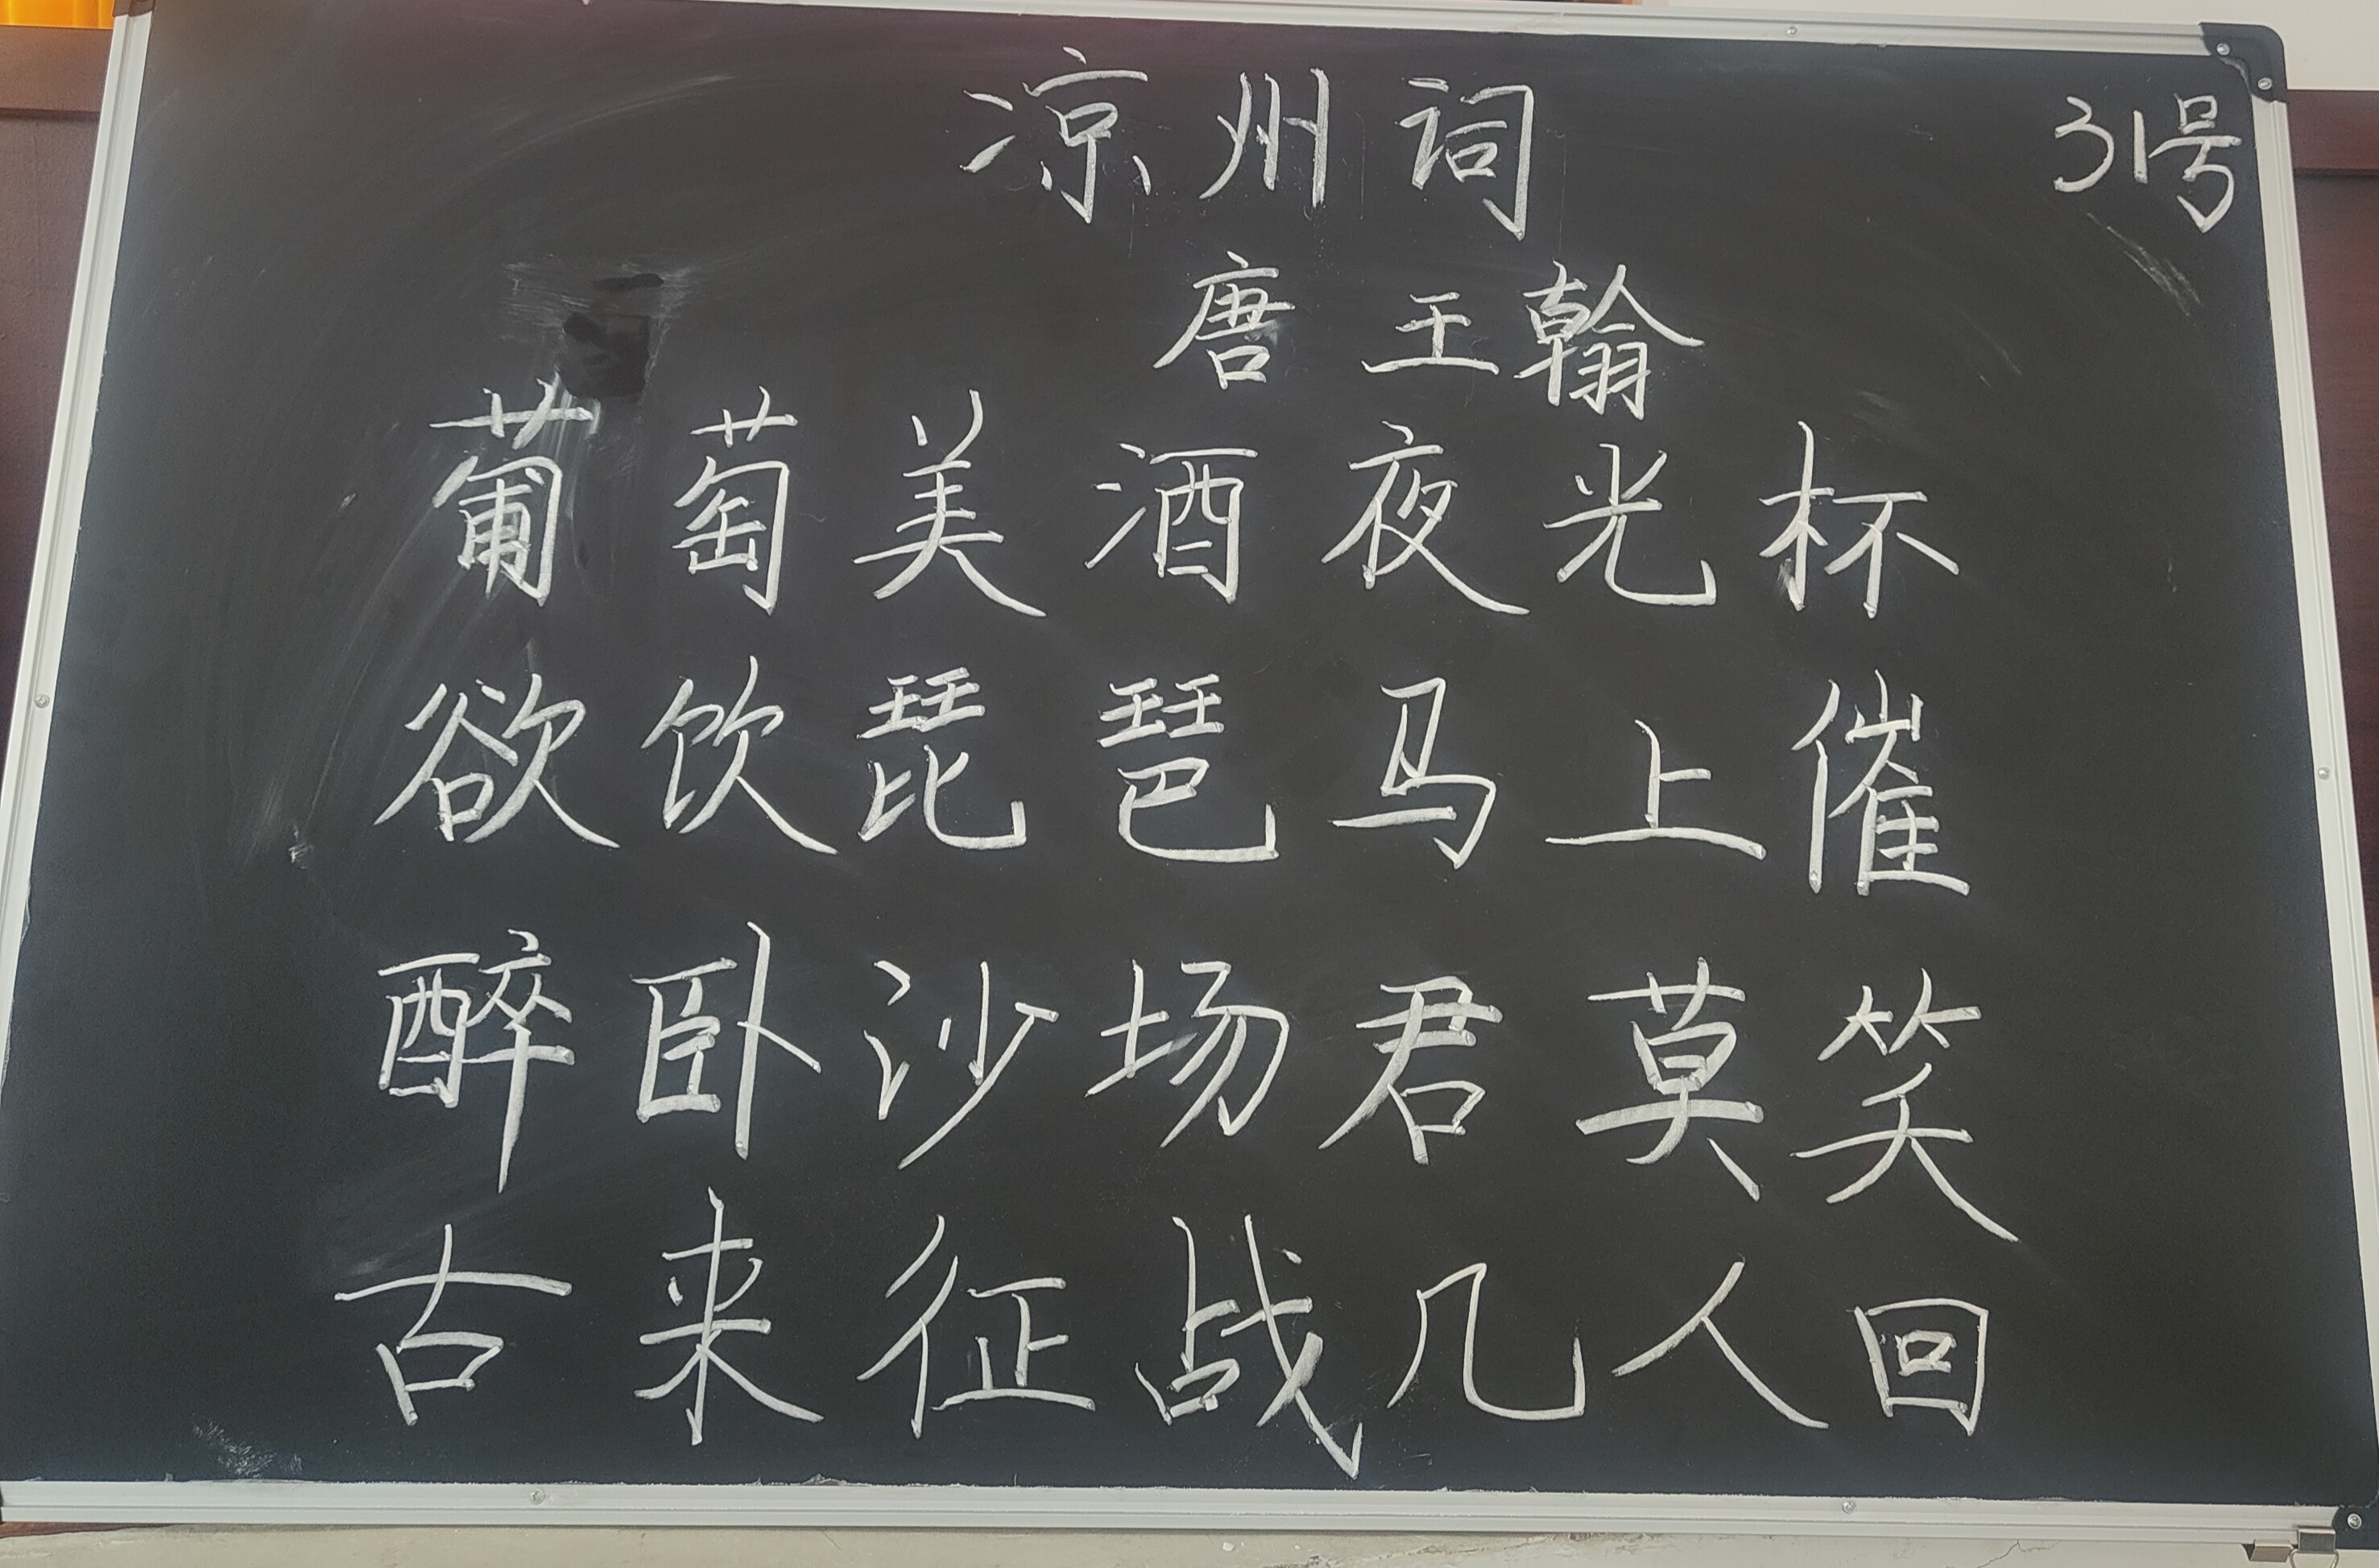 凉州词
31号
唐 王翰
葡萄美酒夜光杯
欲饮琵琶马上催
醉卧沙场君莫笑
古来征战几人回